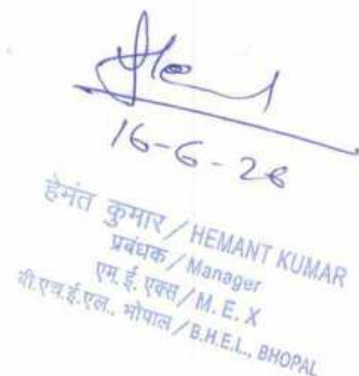 16-6-26
हेमंत कुमार / HEMANT KUMAR
प्रबंधक / Manager
एम. ई. एक्स / M. E. X
बी.एच.ई.एल., भोपाल / B.H.E.L., BHOPAL